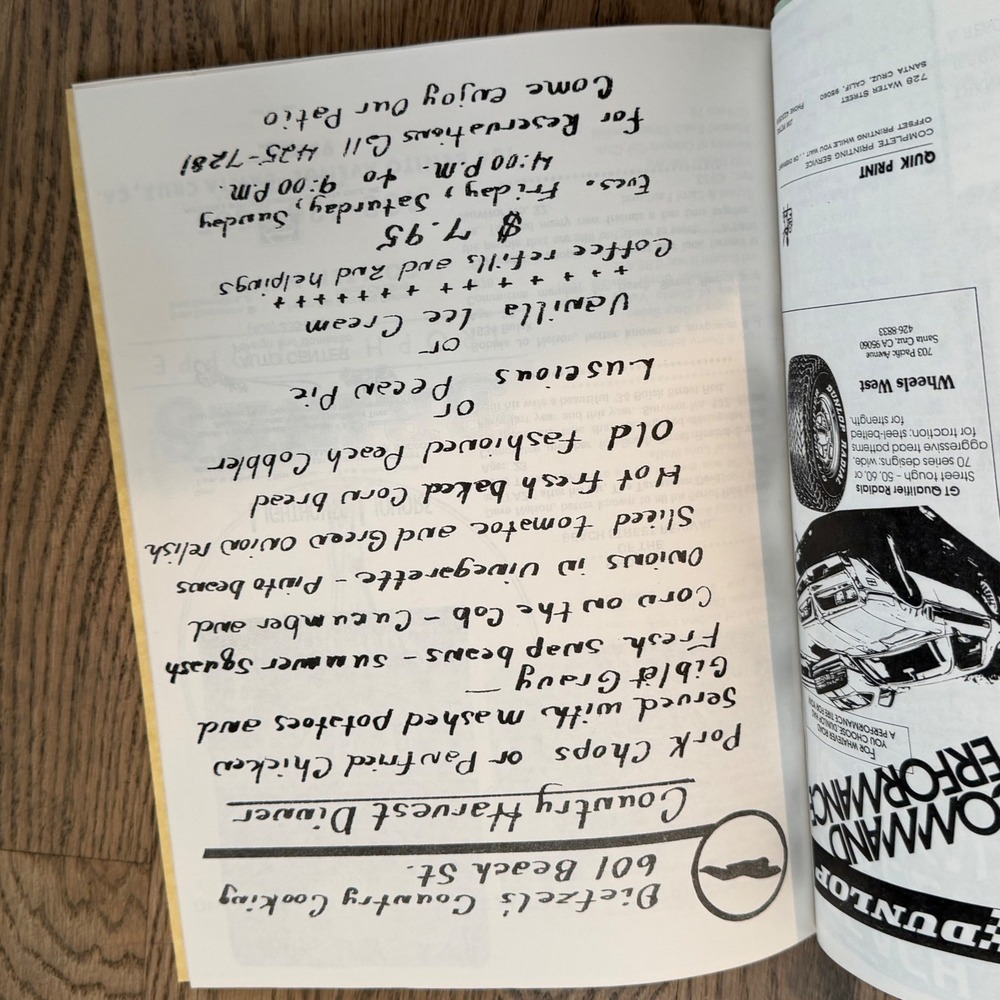 Dietzel's Country Cooking
601 Beach St.
Country Harvest Dinner
Pork Chops or Panfried Chicken
Served with mashed potatoes and
Giblet Gravy —
Fresh snap beans - summer Squash
Corn on the Cob - Cucumber and
Onions in Vinegarette - Pinto beans
Sliced tomatoe and Green Onion relish
Hot fresh baked Corn bread
Old fashioned Peach Cobbler
or
Luscious Pecan Pie
or
Vanilla Ice Cream
+ + + + + + + + + + + + + +
Coffee refills and 2nd helpings
$ 7.95
Eves. Friday, Saturday, Sunday
4:00 P.M. to 9:00 P.M.
For Reservations Call 425-7281
Come enjoy Our Patio
DUNLOP
COMMAND
PERFORMANCE
FOR WHATEVER ROAD
YOU CHOOSE, DUNLOP HAS
A PERFORMANCE TIRE FOR YOU
GT Qualifier Radials
Street tough - 50, 60, or
70 series designs; wide,
aggressive tread patterns
for traction; steel-belted
for strength.
Wheels West
703 Pacific Avenue
Santa Cruz, CA 95060
426-8833
QUIK PRINT
COMPLETE PRINTING SERVICE
OFFSET PRINTING WHILE YOU WAIT
728 WATER STREET
SANTA CRUZ, CALIF. 95060
PHONE